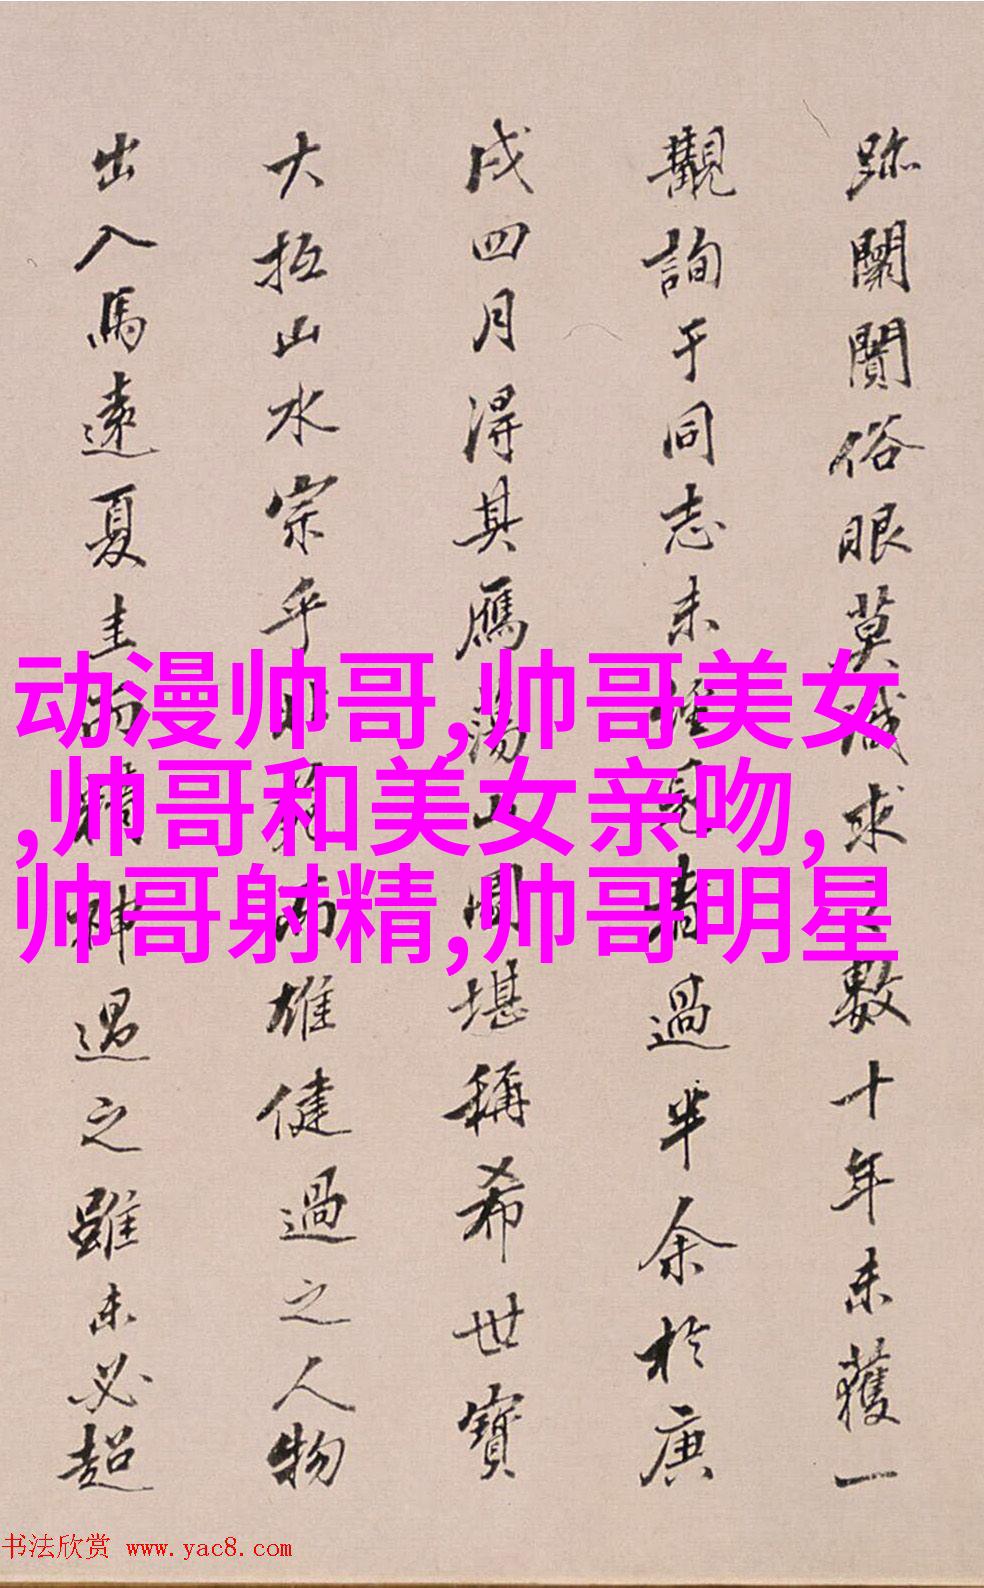 跡闤闠俗眼莫識求之數十年未獲一
觀詢于同志未經見者過半余於庚
戌四月得其鴈蕩山圖堪稱希世寶
大抵山水宗乎 而雄健過之人物
出入馬遠夏圭而精神過之雖未必超
动漫帅哥,帅哥美女
,帅哥和美女亲吻,
帅哥射精,帅哥明星
书法欣赏 www.yac8.com